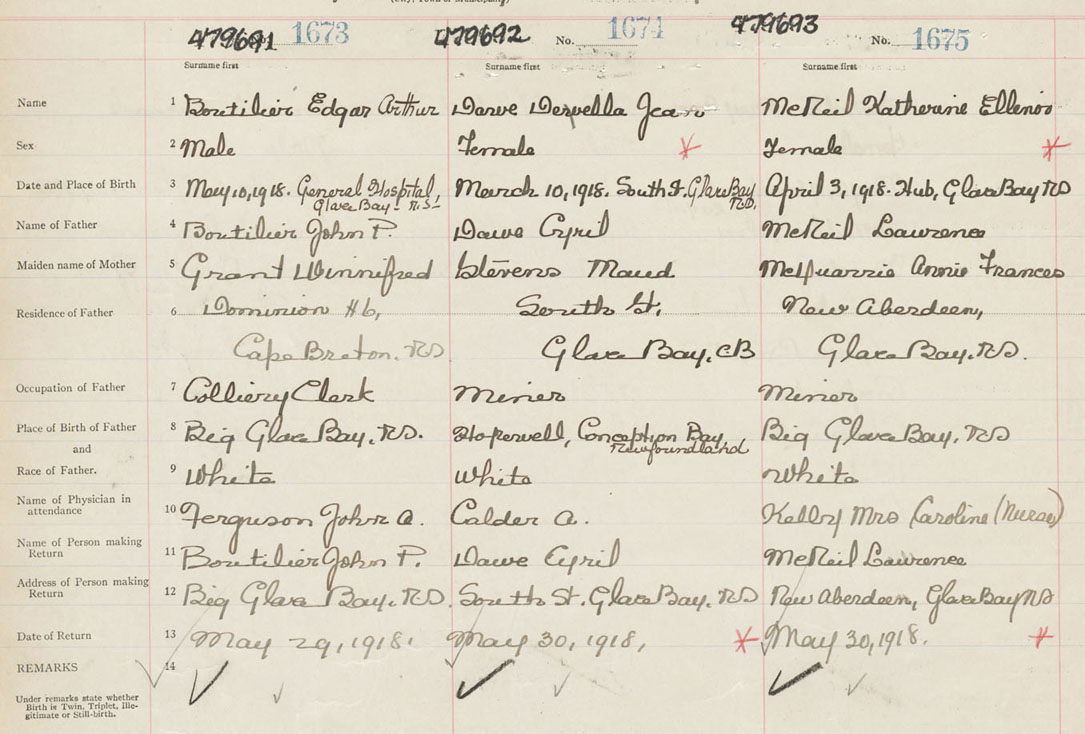 (City, Town or Municipality)
479691 1673 479692 No. 1674 479693 No. 1675
Surname first Surname first Surname first
Name 1 Boutilier Edgar Arthur Dawe Dervella Jean McNeil Katherine Ellenor
Sex 2 Male Female Female
Date and Place of Birth 3 May 10, 1918. General Hospital, Glace Bay - N.S. March 10, 1918. South St. Glace Bay N.S. April 3, 1918. Hub, Glace Bay N.S
Name of Father 4 Boutilier John P. Dawe Cyril McNeil Lawrence
Maiden name of Mother 5 Grant Winnifred Stevens Maud McQuarrie Annie Frances
Residence of Father 6 Dominion #6, South St. New Aberdeen,
Cape Breton, N.S Glace Bay, CB Glace Bay, N.S.
Occupation of Father 7 Colliery Clerk Miner Miner
Place of Birth of Father 8 Big Glace Bay, N.S. Hopewell, Conception Bay, Newfoundland Big Glace Bay, N.S
and
Race of Father. 9 White White White
Name of Physician in attendance 10 Ferguson John A. Calder A. Kelley Mrs Caroline (Nurse)
Name of Person making Return 11 Boutilier John P. Dawe Cyril McNeil Lawrence
Address of Person making Return 12 Big Glace Bay, N.S. South St. Glace Bay, N.S New Aberdeen, Glace Bay NS
Date of Return 13 May 29, 1918. May 30, 1918, May 30, 1918.
REMARKS 14
Under remarks state whether
Birth is Twin, Triplet, Ille-
gitimate or Still-birth.